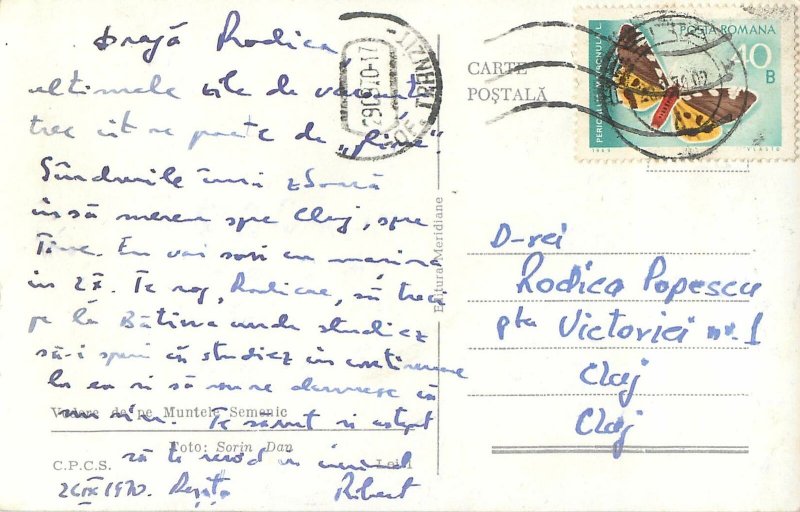 Dragă Rodica,
ultimele zile de vacanță
trec cît se poate de „fine”.
Gîndurile îmi zboară
însă mereu spre Cluj, spre
Tine. Eu voi sosi cu mașina
în 27. Te rog, Rodica, să treci
pe la
unde studiez
să-i spui că studiez în continuare
la ea și să nu se
că
nu vin. Te sărut și aștept
să te revăd
26 IX 1970. Reșița Robert
Vedere de pe Muntele Semenic
Foto: Sorin Dan
C.P.C.S. Lei 1
Editura Meridiane
CARTE
POȘTALĂ
POSTA ROMANA
40 B
PERICALLIA MATRONULA L.
1969 VLASTO
29.09.70-17
D-rei
Rodica Popescu
pța Victoriei nr. 1
Cluj
Cluj